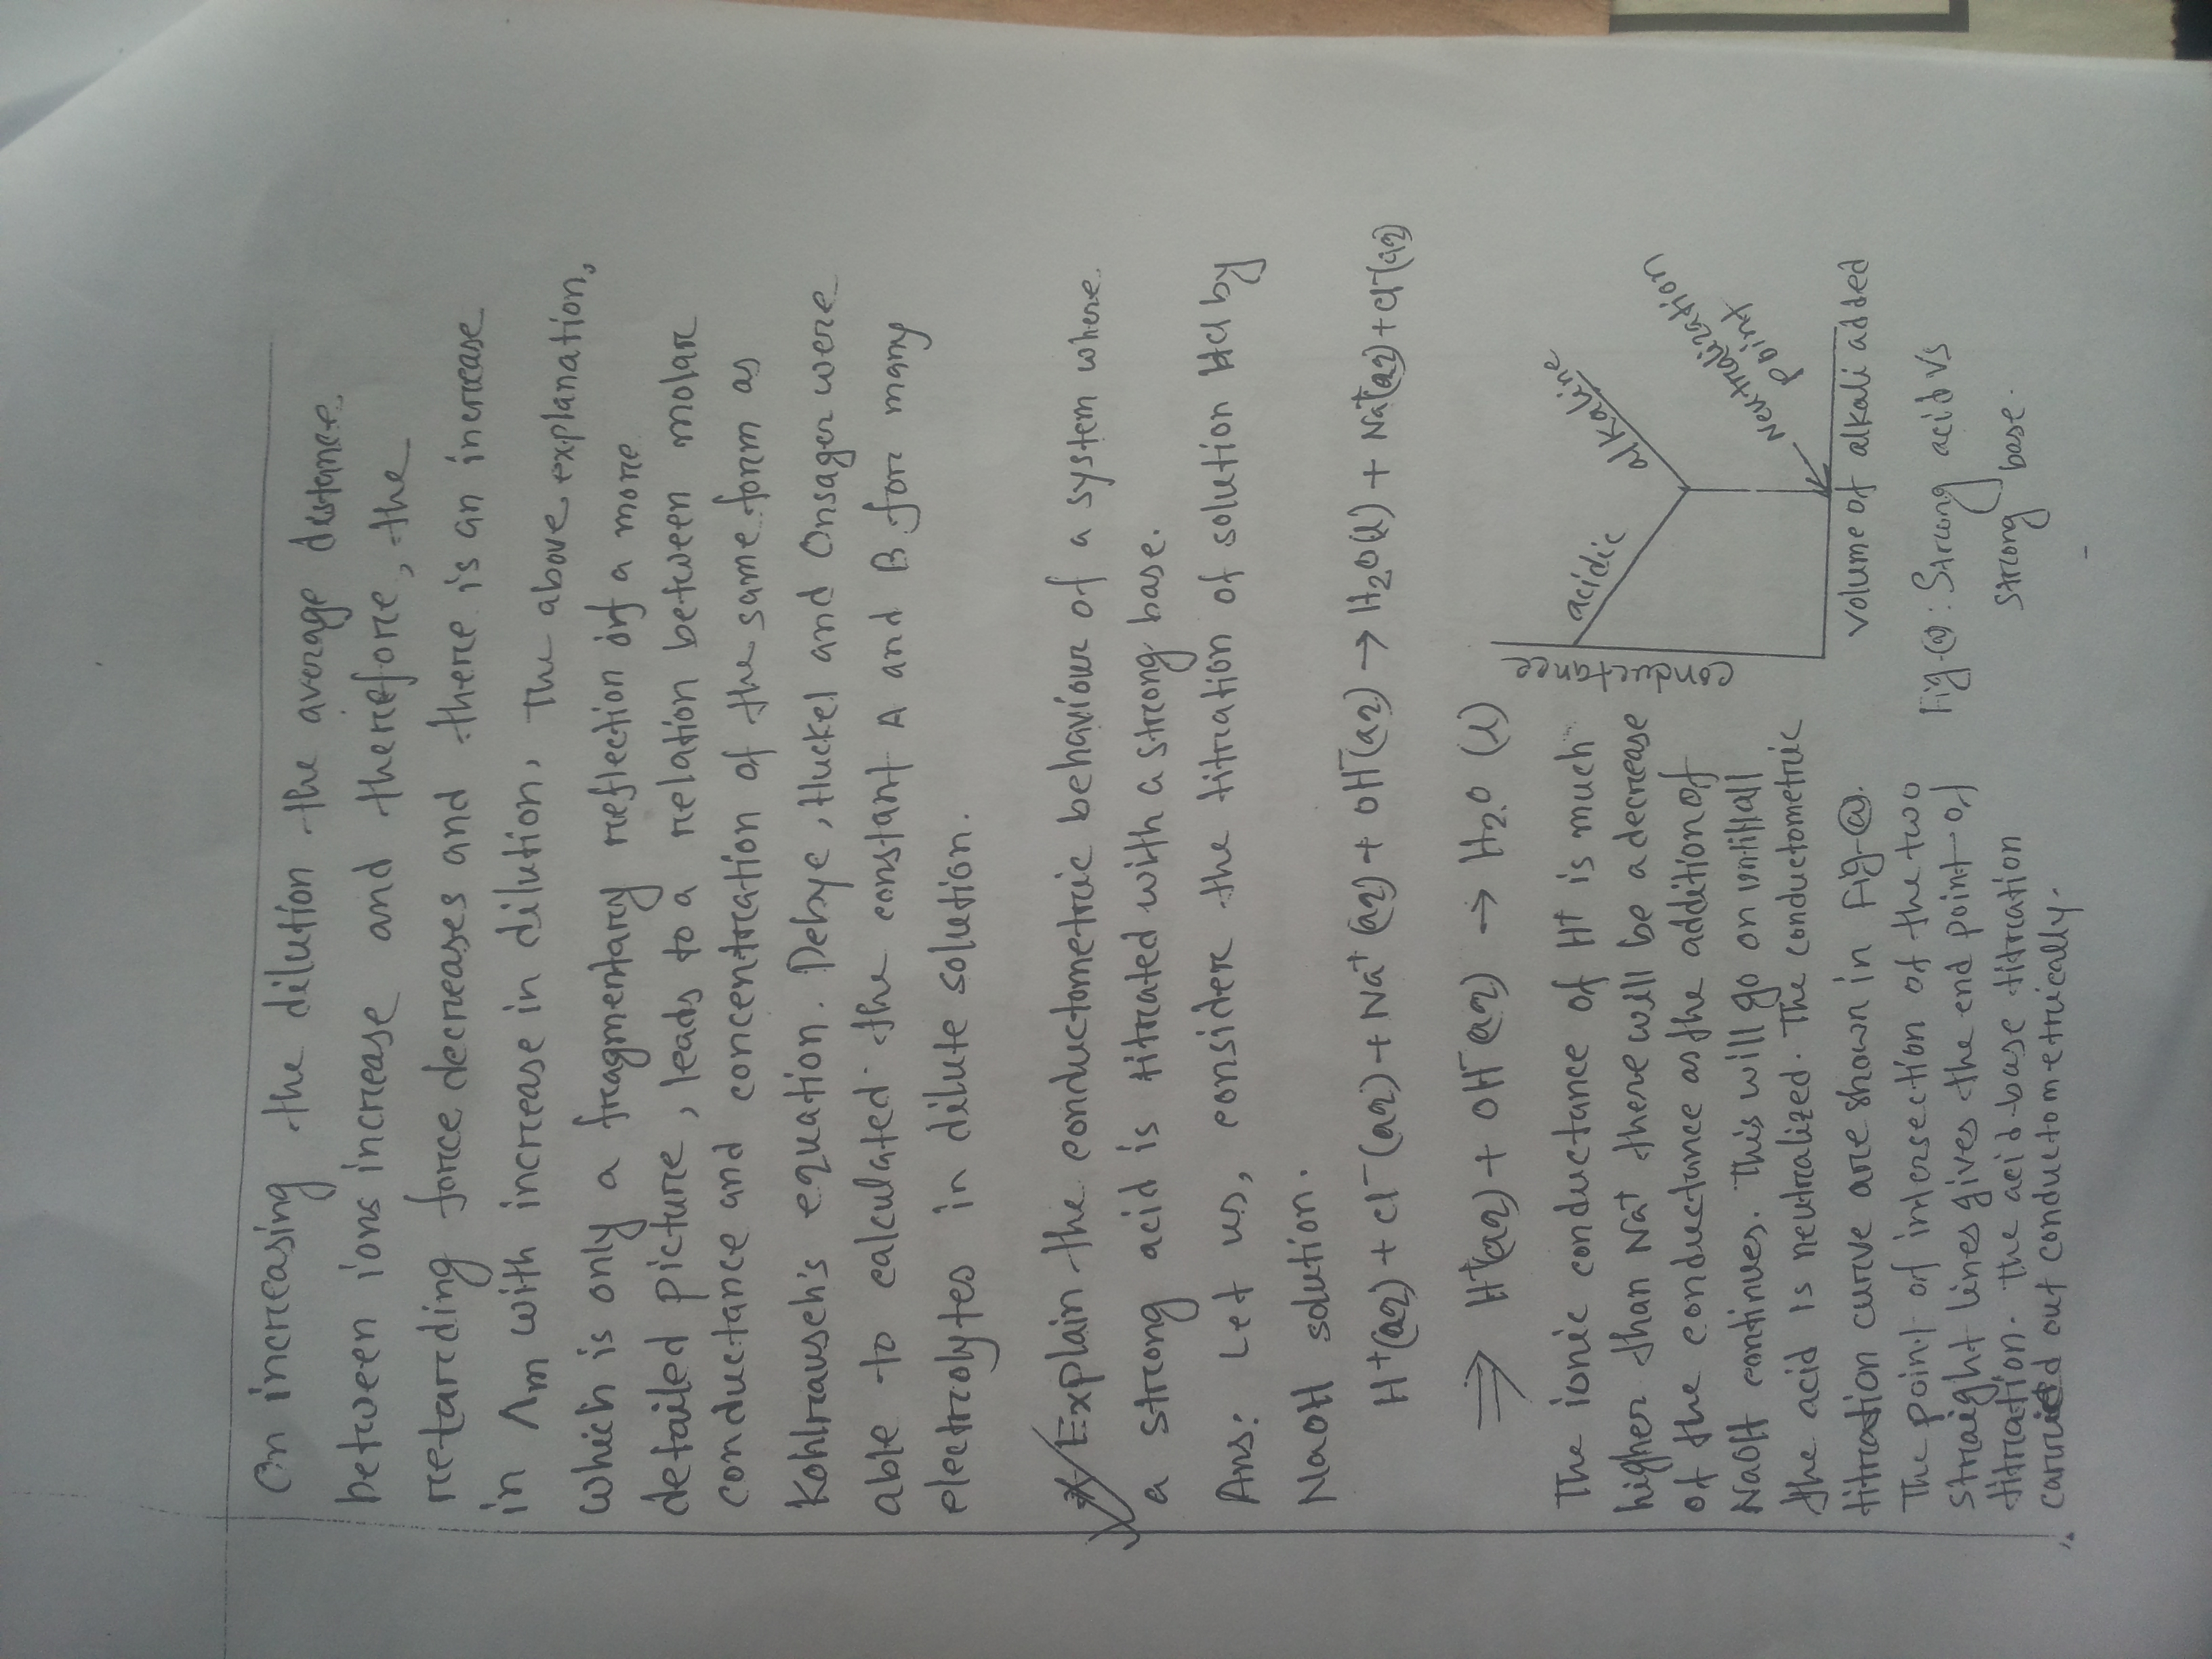 On increasing the dilution the average distance
between ions increase and therefore, the
retarding force decreases and there is an increase
in Λm with increase in dilution, The above explanation,
which is only a fragmentary reflection of a more
detailed picture, leads to a relation between molar
conductance and concentration of the same form as
Kohlrausch's equation. Debye, Huckel and Onsager were
able to calculated the constant A and B for many
electrolytes in dilute solution.
Explain the conductometric behaviour of a system where
a strong acid is titrated with a strong base.
Ans: Let us, consider the titration of solution HCl by
NaOH solution.
H⁺(aq) + Cl⁻(aq) + Na⁺(aq) + OH⁻(aq) → H₂O(l) + Na⁺(aq) + Cl⁻(aq)
⇒ H⁺(aq) + OH⁻(aq) → H₂O (l)
The ionic conductance of H⁺ is much
higher than Na⁺ there will be a decrease
of the conductance as the addition of
NaOH continues. This will go on untill all
the acid is neutralized. The conductometric
titration curve are shown in Fig-(a).
The point of intersection of the two
straight lines gives the end point of
titration. The acid-base titration
carried out conductometrically.
conductance
acidic
alkaline
Neutralization
point
volume of alkali added
Fig-(a): Strong acid vs
strong base.